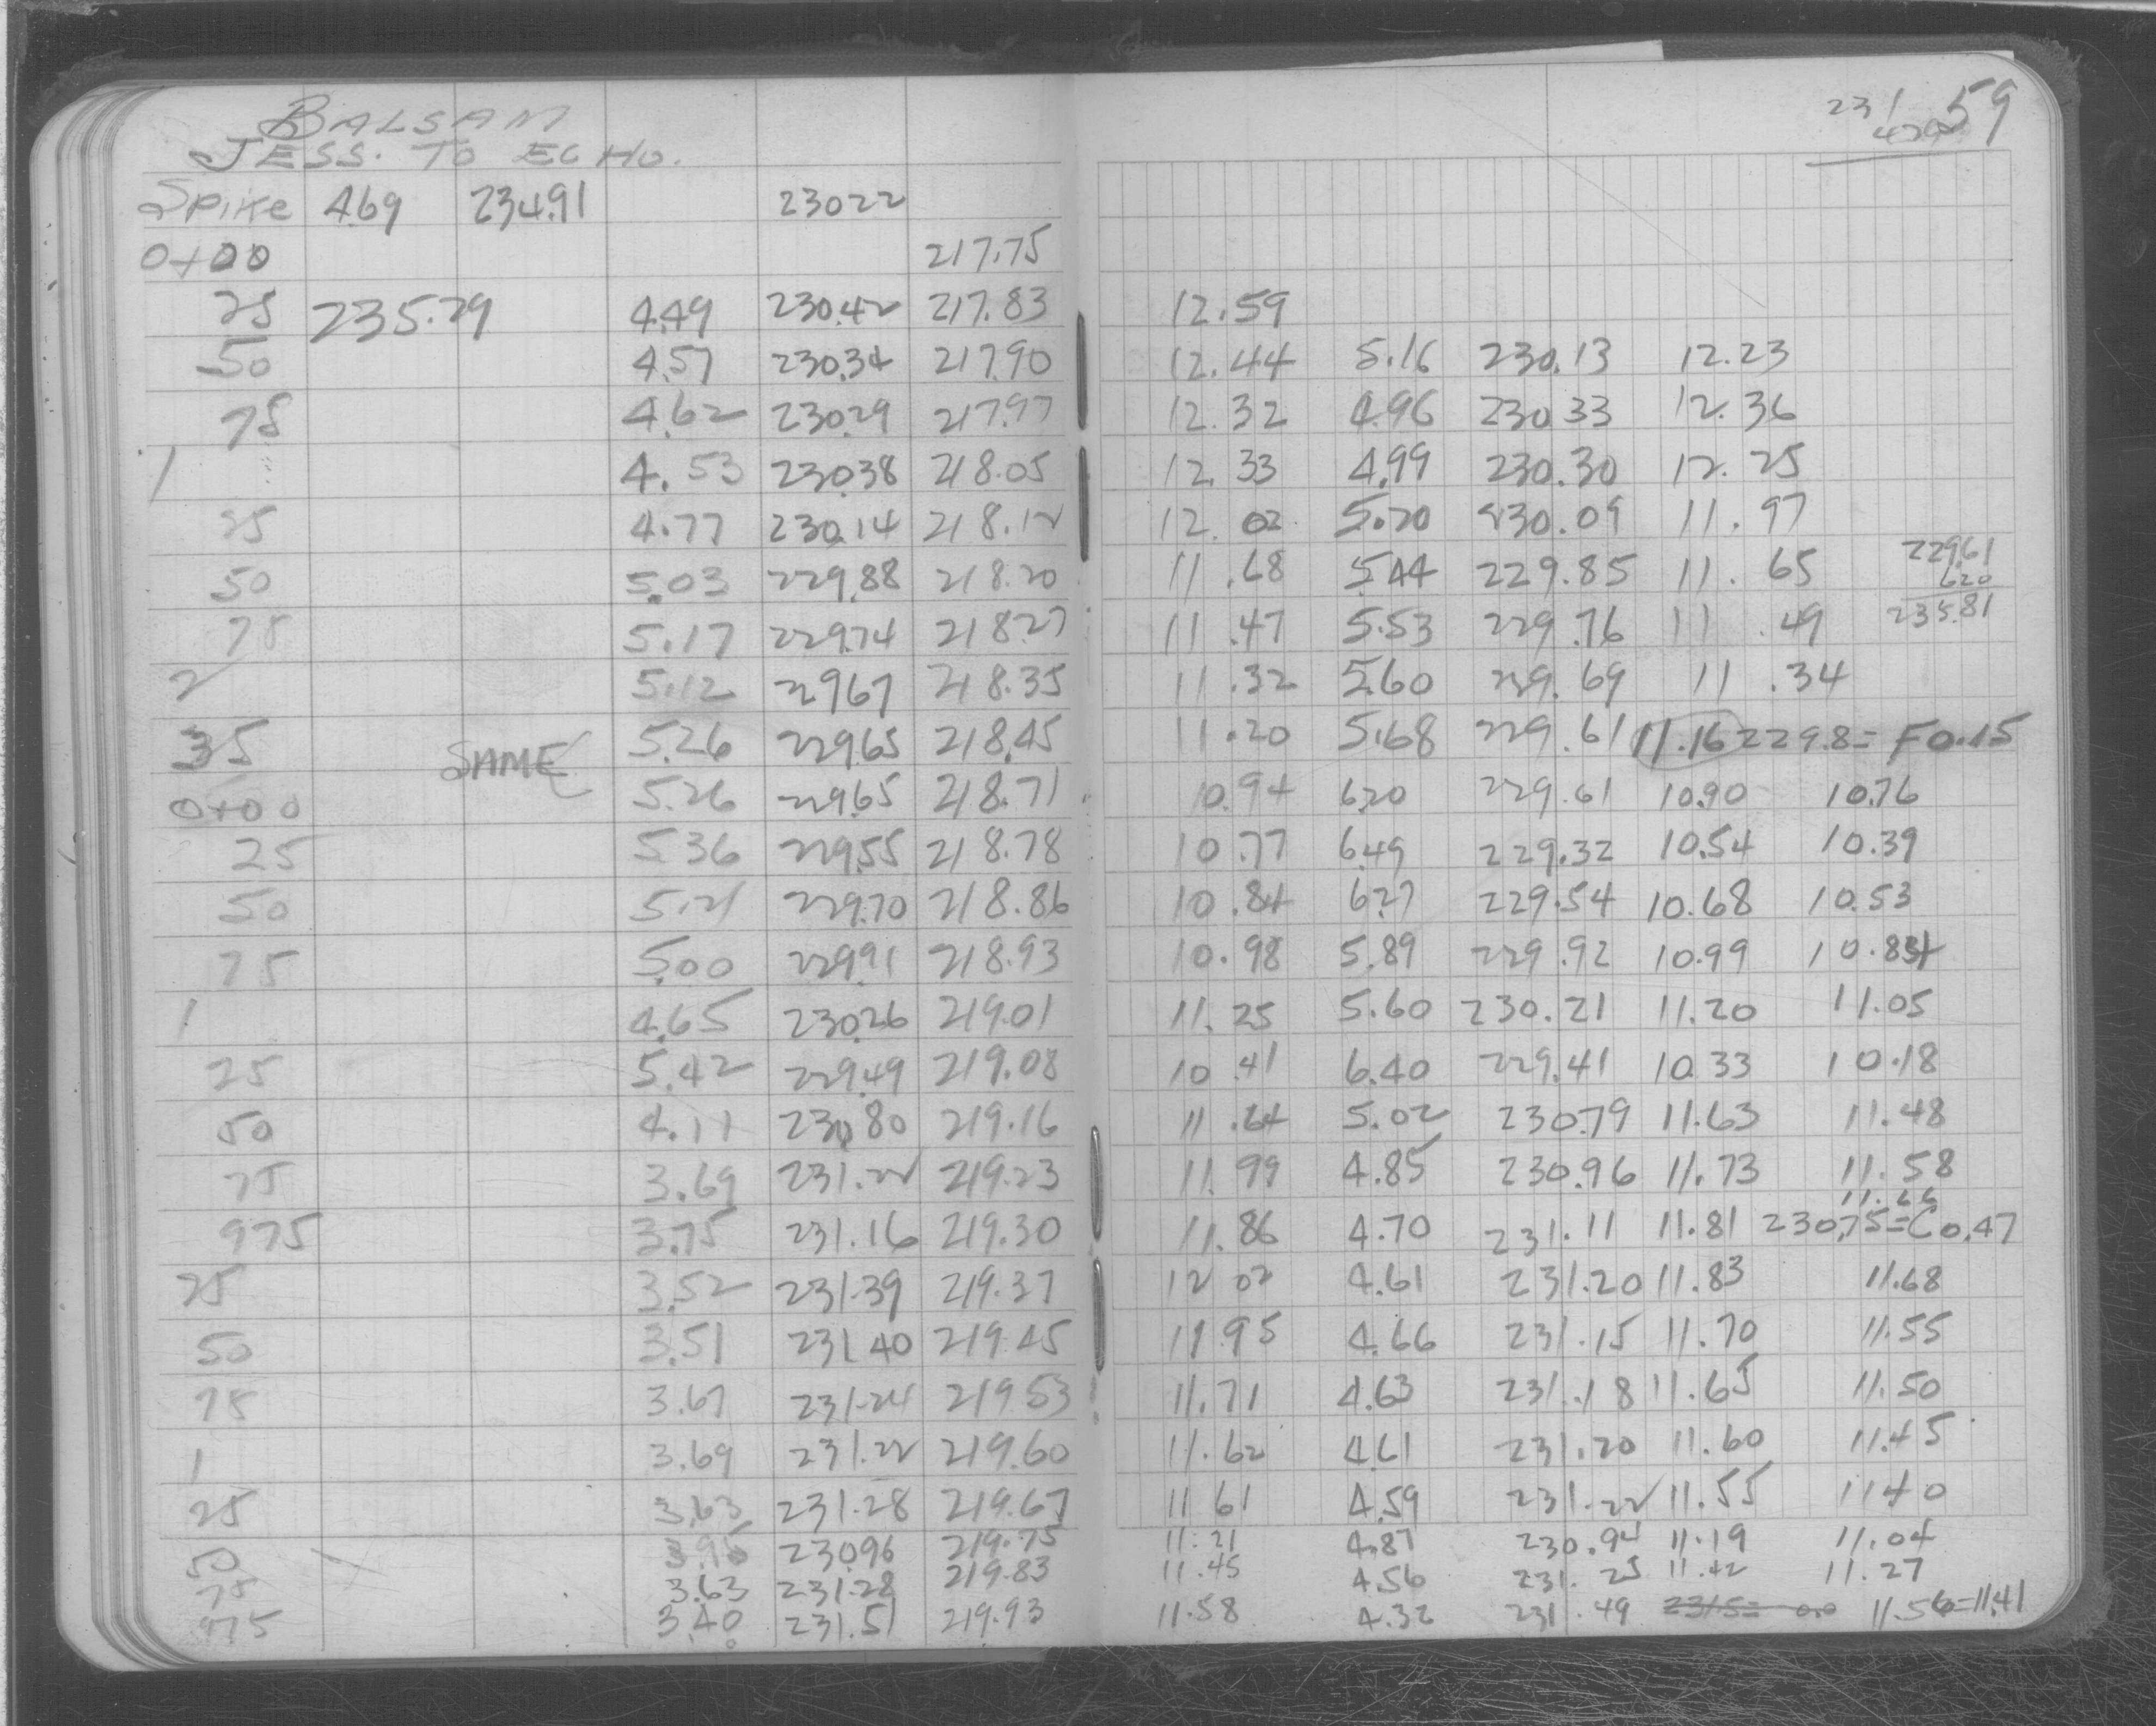 BALSAM 231 59
JESS. TO ECHO.
Spike 4.69 234.91 230.22
0+00 217.75
25 235.29 4.49 230.42 217.83 12.59
50 4.57 230.34 217.90 12.44 5.16 230.13 12.23
75 4.62 230.29 217.97 12.32 4.96 230.33 12.36
1 4.53 230.38 218.05 12.33 4.99 230.30 12.25
25 4.77 230.14 218.12 12.02 5.20 230.09 11.97
50 5.03 229.88 218.20 11.68 5.44 229.85 11.65 229.61
620
75 5.17 229.74 218.27 11.47 5.53 229.76 11.49 235.81
2 5.12 229.67 218.35 11.32 5.60 229.69 11.34
35 SAME 5.26 229.65 218.45 11.20 5.68 229.61 11.16 229.8= F0.15
0+00 5.26 229.65 218.71 10.94 6.20 229.61 10.90 10.76
25 5.36 229.55 218.78 10.77 6.49 229.32 10.54 10.39
50 5.21 229.70 218.86 10.84 6.27 229.54 10.68 10.53
75 5.00 229.91 218.93 10.98 5.89 229.92 10.99 10.84
1 4.65 230.26 219.01 11.25 5.60 230.21 11.20 11.05
25 5.42 229.49 219.08 10.41 6.40 229.41 10.33 10.18
50 4.11 230.80 219.16 11.64 5.02 230.79 11.63 11.48
75 3.69 231.22 219.23 11.99 4.85 230.96 11.73 11.58
11.66
975 3.75 231.16 219.30 11.86 4.70 231.11 11.81 230.75=C0.47
25 3.52 231.39 219.37 12 02 4.61 231.20 11.83 11.68
50 3.51 231.40 219.45 11.95 4.66 231.15 11.70 11.55
75 3.67 231.24 219.53 11.71 4.63 231.18 11.65 11.50
1 3.69 231.22 219.60 11.62 4.61 231.20 11.60 11.45
25 3.63 231.28 219.67 11 61 4.59 231.22 11.55 11.40
50 3.95 230.96 219.75 11.21 4.87 230.94 11.19 11.04
75 3.63 231.28 219.83 11.45 4.56 231.25 11.42 11.27
975 3.40 231.51 219.93 11.58 4.32 231.49 231.5= 0.0 11.56=11.41